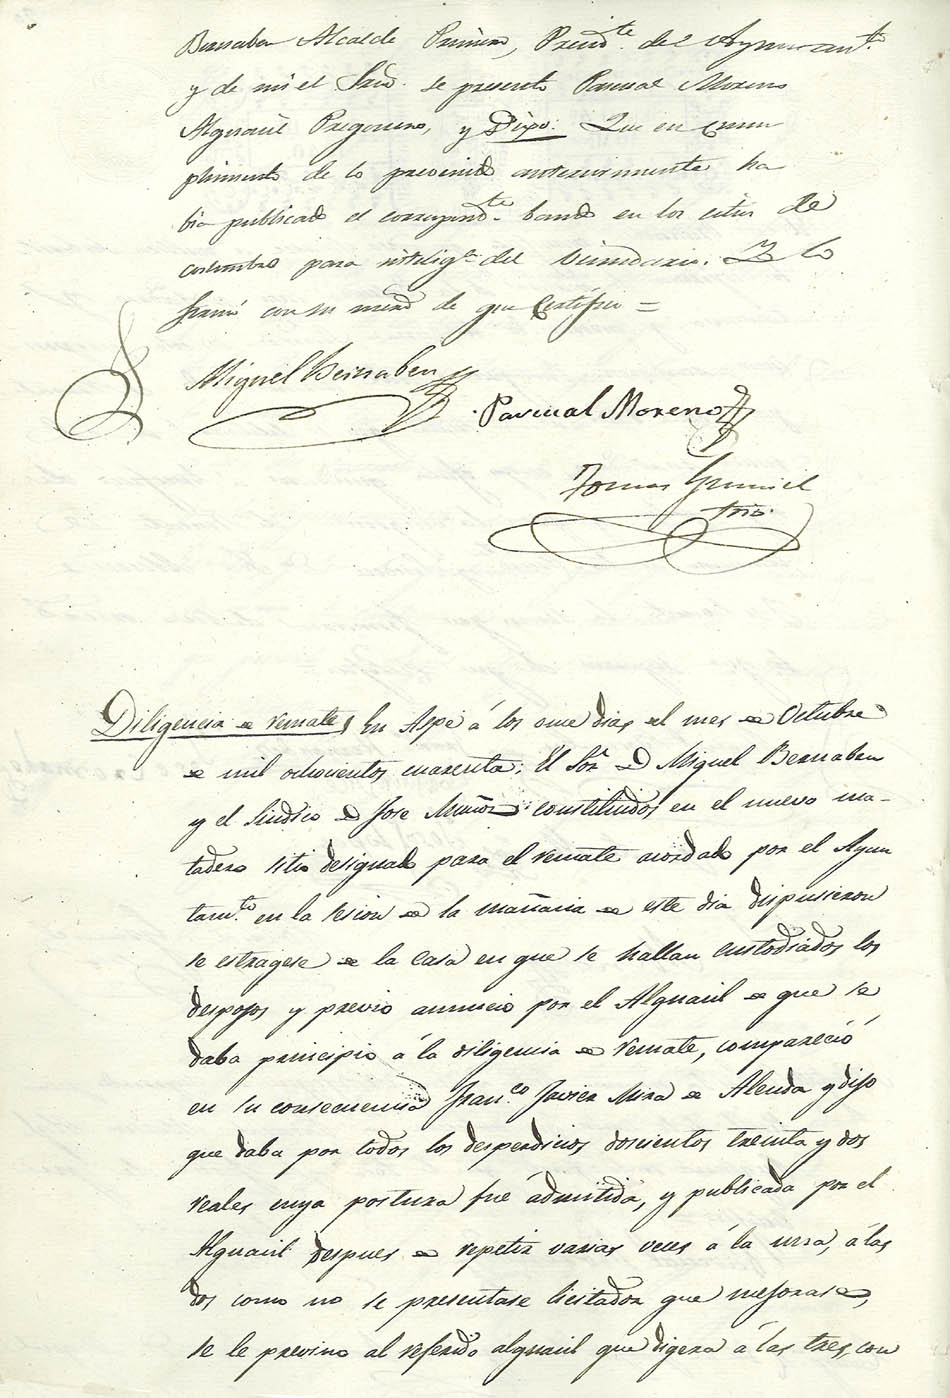 Bernabeu Alcalde Primero, Presid.te del Ayuntam.to
y de mi el Srio. se presentó Pascual Moreno
Alguacil Pregonero, y Dijo: Que en cum
plimiento de lo prevenido anteriormente ha
bia publicado el correspond.te bando en los sitios de
costumbre para intelig.a del vecindario. Y lo
firmó con su mrced de que Certifico =
Miguel Bernabeu
Pascual Moreno
Tomas
Srio.
Diligencia de remate, En Aspe á los once dias del mes de Octubre
de mil ochocientos cuarenta: El Sor. D Miguel Bernabeu
y el Sindico D Jose Muñoz constituidos en el nuevo ma-
tadero sitio designado para el remate acordado por el Ayun
tam.to en la sesion de la mañana de este dia dispusieron
se estragese de la Casa en que se hallan custodiados los
despojos y previo anuncio por el Alguacil de que se
daba principio á la diligencia de remate, compareció
en su consecuencia Fran.co Javier Mira de Alenda y dijo
que daba por todos los desperdicios doscientos treinta y dos
reales cuya postura fué admitida, y publicada por el
Alguacil despues de repetir varias veces á la una, á las
dos como no se presentase licitador que mejorase,
se le previno al referido alguacil que digera á las tres, con